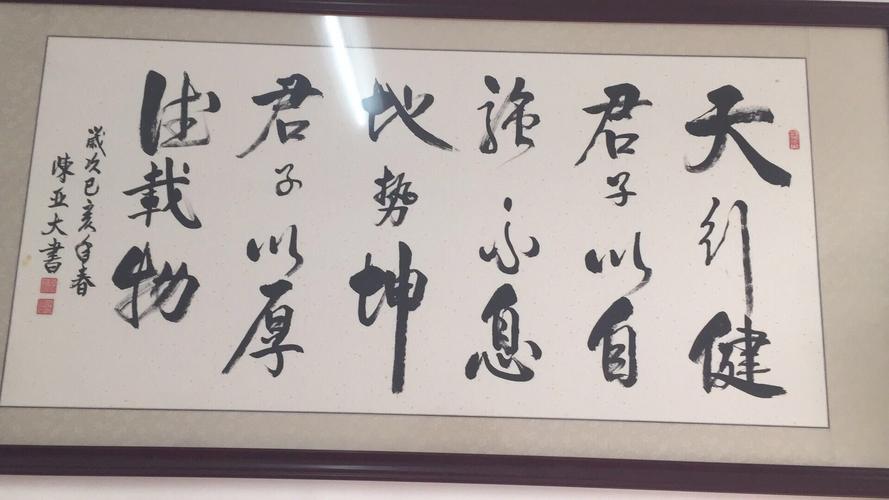 天行健
君子以自
强不息
地势坤
君子以厚
德载物
歲次己亥年春
陳亚大書